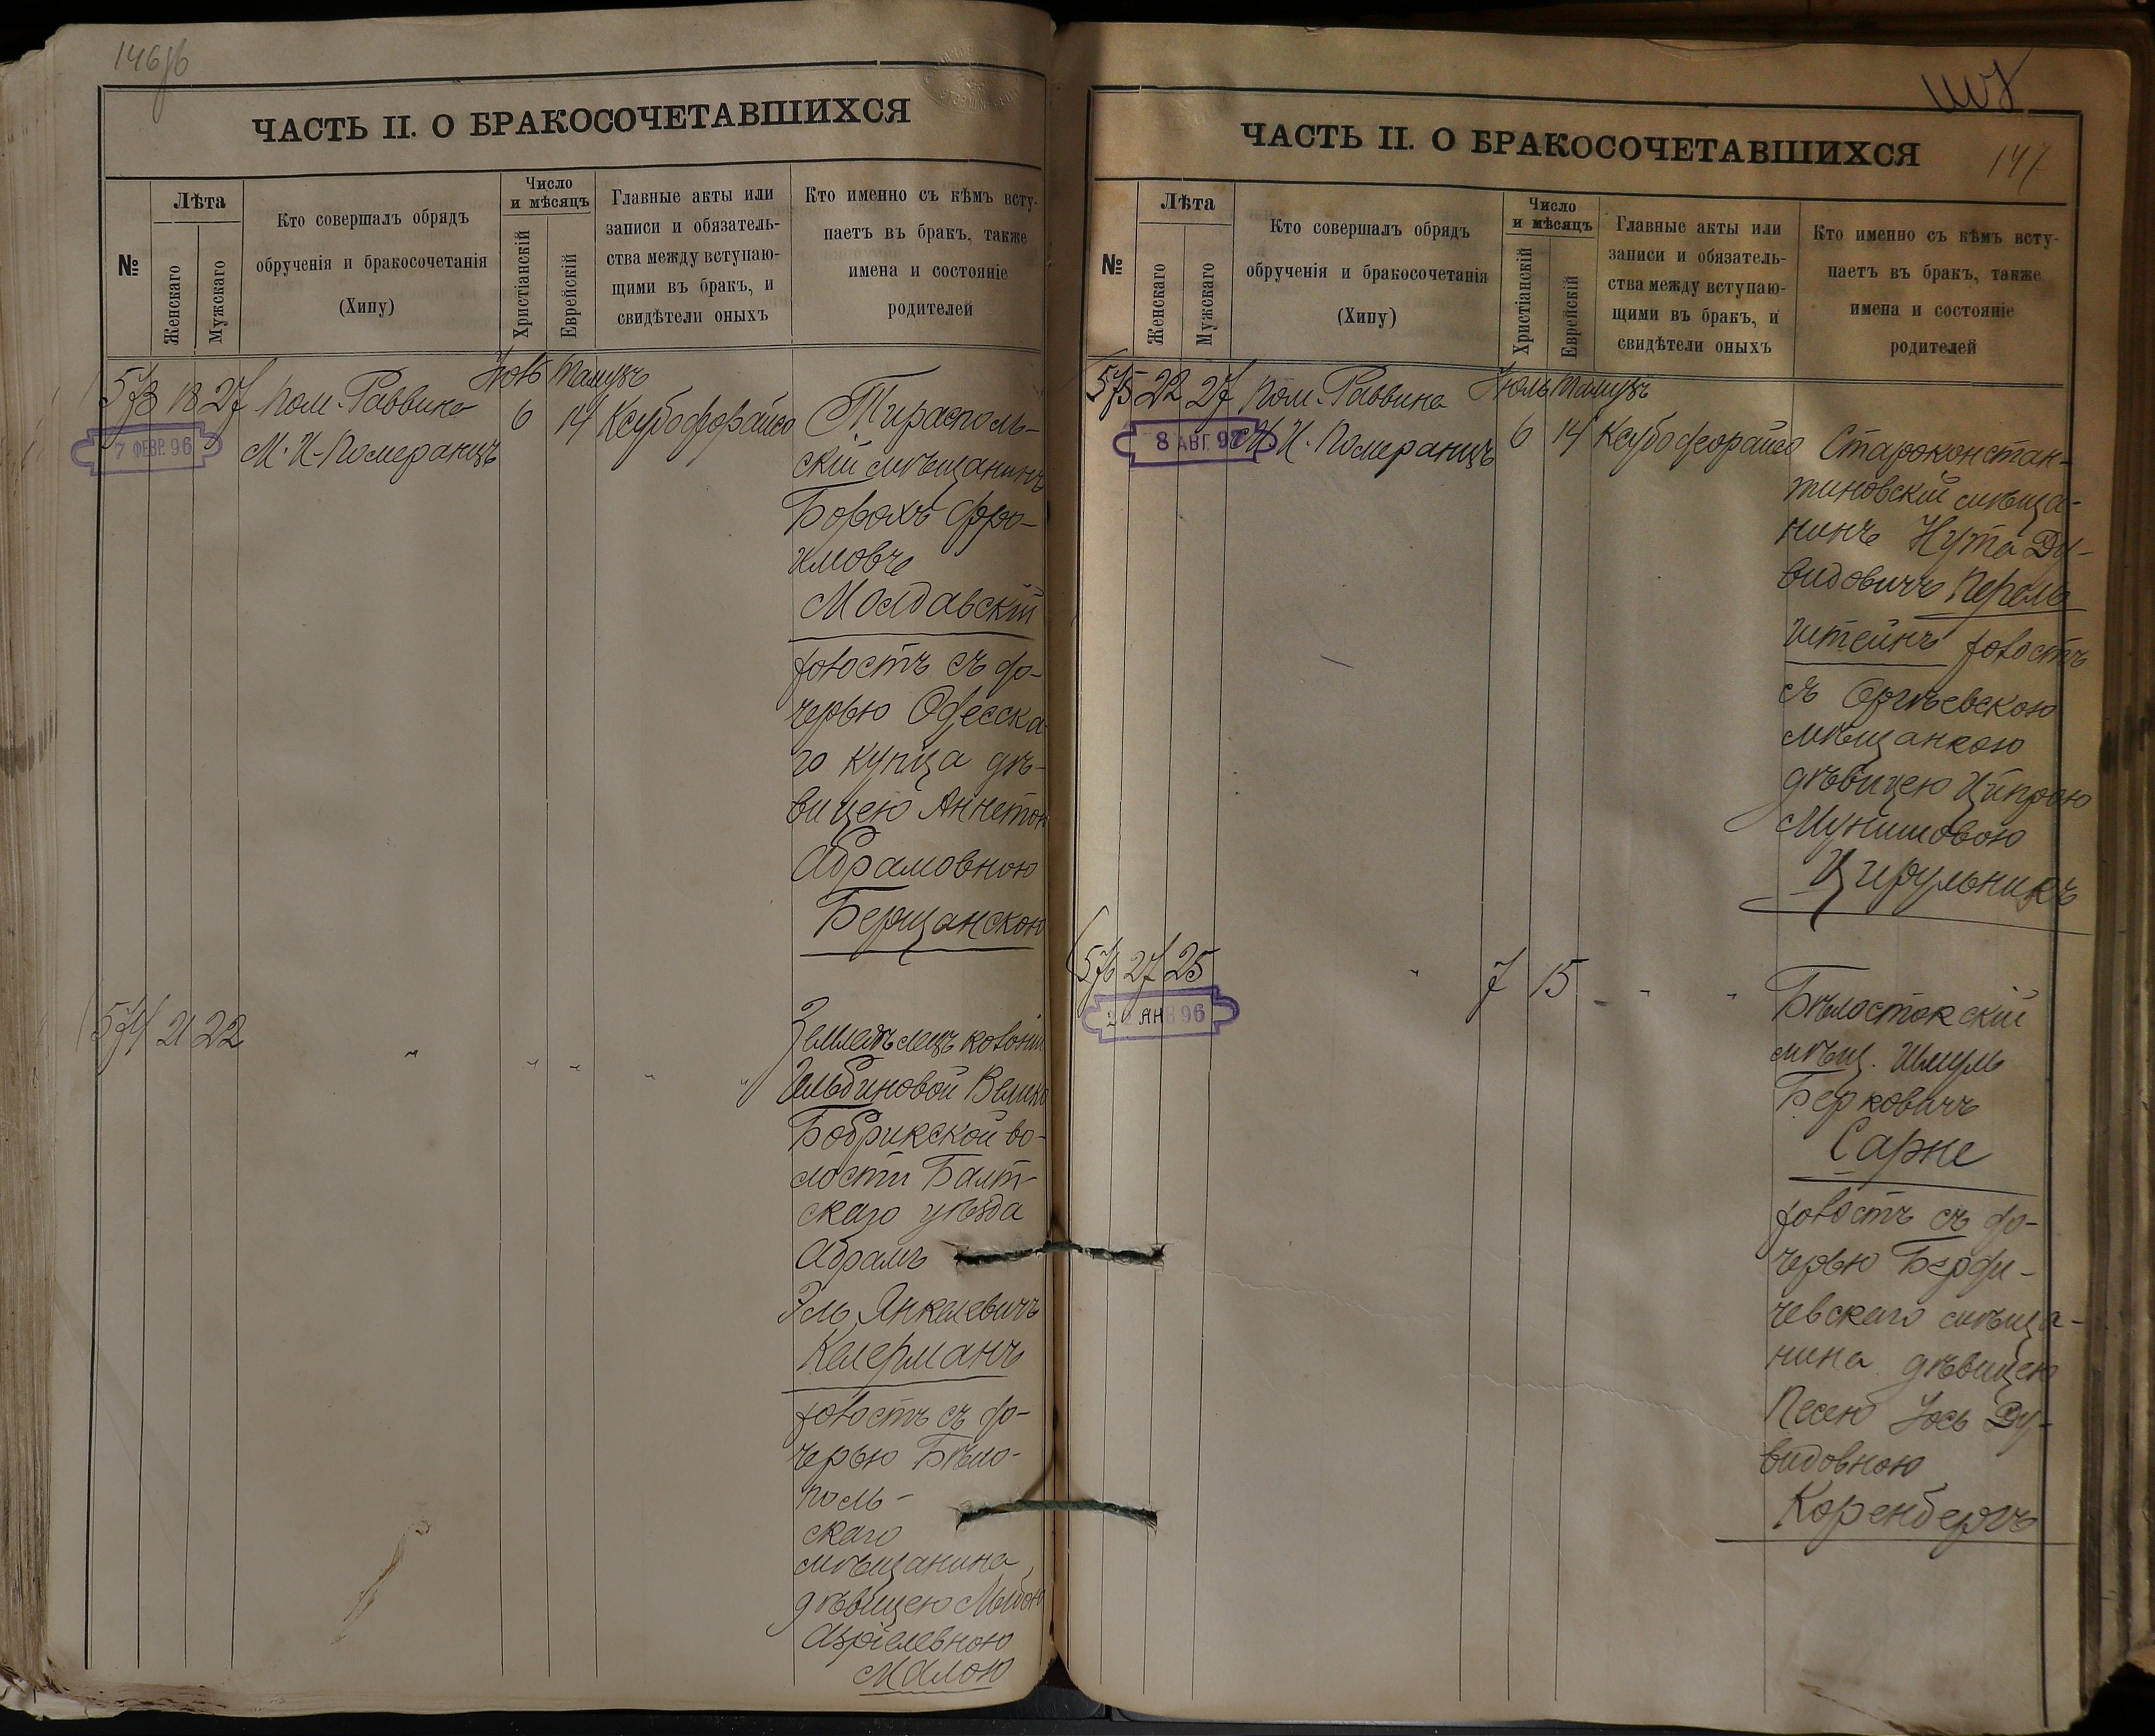 146об
ЧАСТЬ II. О БРАКОСОЧЕТАВШИХСЯ
№
Лѣта
Женскаго
Мужскаго
Кто совершалъ обрядъ
обрученія и бракосочетанія
(Хипу)
Число
и мѣсяцъ
Христіанскій
Еврейскій
Главные акты или
записи и обязатель-
ства между вступаю-
щими въ бракъ, и
свидѣтели оныхъ
Кто именно съ кѣмъ всту-
паетъ въ бракъ, также
имена и состояніе
родителей
Іюль Тамузъ
573 18 27 Пом. Раввина
6 14 Ксубо форайсо
7 ФЕВР. 96
М. И. Померанцъ
Тирасполь-
скій мѣщанинъ
Борохъ Фро-
имовъ
Молдавскій
холостъ съ до-
черью Одесска-
го купца дѣ-
вицею Аннетою
Абрамовною
Берщанскою
574 21 22 " " " " "
Земледѣлецъ колоніи
Гильбиновой Велико
Бобрикской во-
лости Балт-
скаго уѣзда
Абрамъ
Эль Янкелевичъ
Келерманъ
холостъ съ до-
черью Бѣло-
поль-
скаго
мѣщанина
дѣвицею
Азріелевною
Малою
147
ЧАСТЬ II. О БРАКОСОЧЕТАВШИХСЯ
№
Лѣта
Женскаго
Мужскаго
Кто совершалъ обрядъ
обрученія и бракосочетанія
(Хипу)
Число
и мѣсяцъ
Христіанскій
Еврейскій
Главные акты или
записи и обязатель-
ства между вступаю-
щими въ бракъ, и
свидѣтели оныхъ
Кто именно съ кѣмъ всту-
паетъ въ бракъ, также
имена и состояніе
родителей
Іюль Тамузъ
575 22 27 Пом. Раввина
6 14 Ксубо форайсо
8 АВГ. 97
М. И. Померанцъ
Староконстан-
тиновскій мѣща-
нинъ Нута Ду-
видовичъ Перель
штейнъ холостъ
съ Оргѣевскою
мѣщанкою
дѣвицею Ципрою
Мунишовою
Цирульникъ
576 27 25 " 7 15 " " "
ЯНВ 96
Бѣлостокскій
мѣщ. Шмуль
Берковичъ
Сарне
холостъ съ до-
черью Берди-
чевскаго мѣща-
нина дѣвицею
Песею Йось Ду-
видовною
Коренбергъ